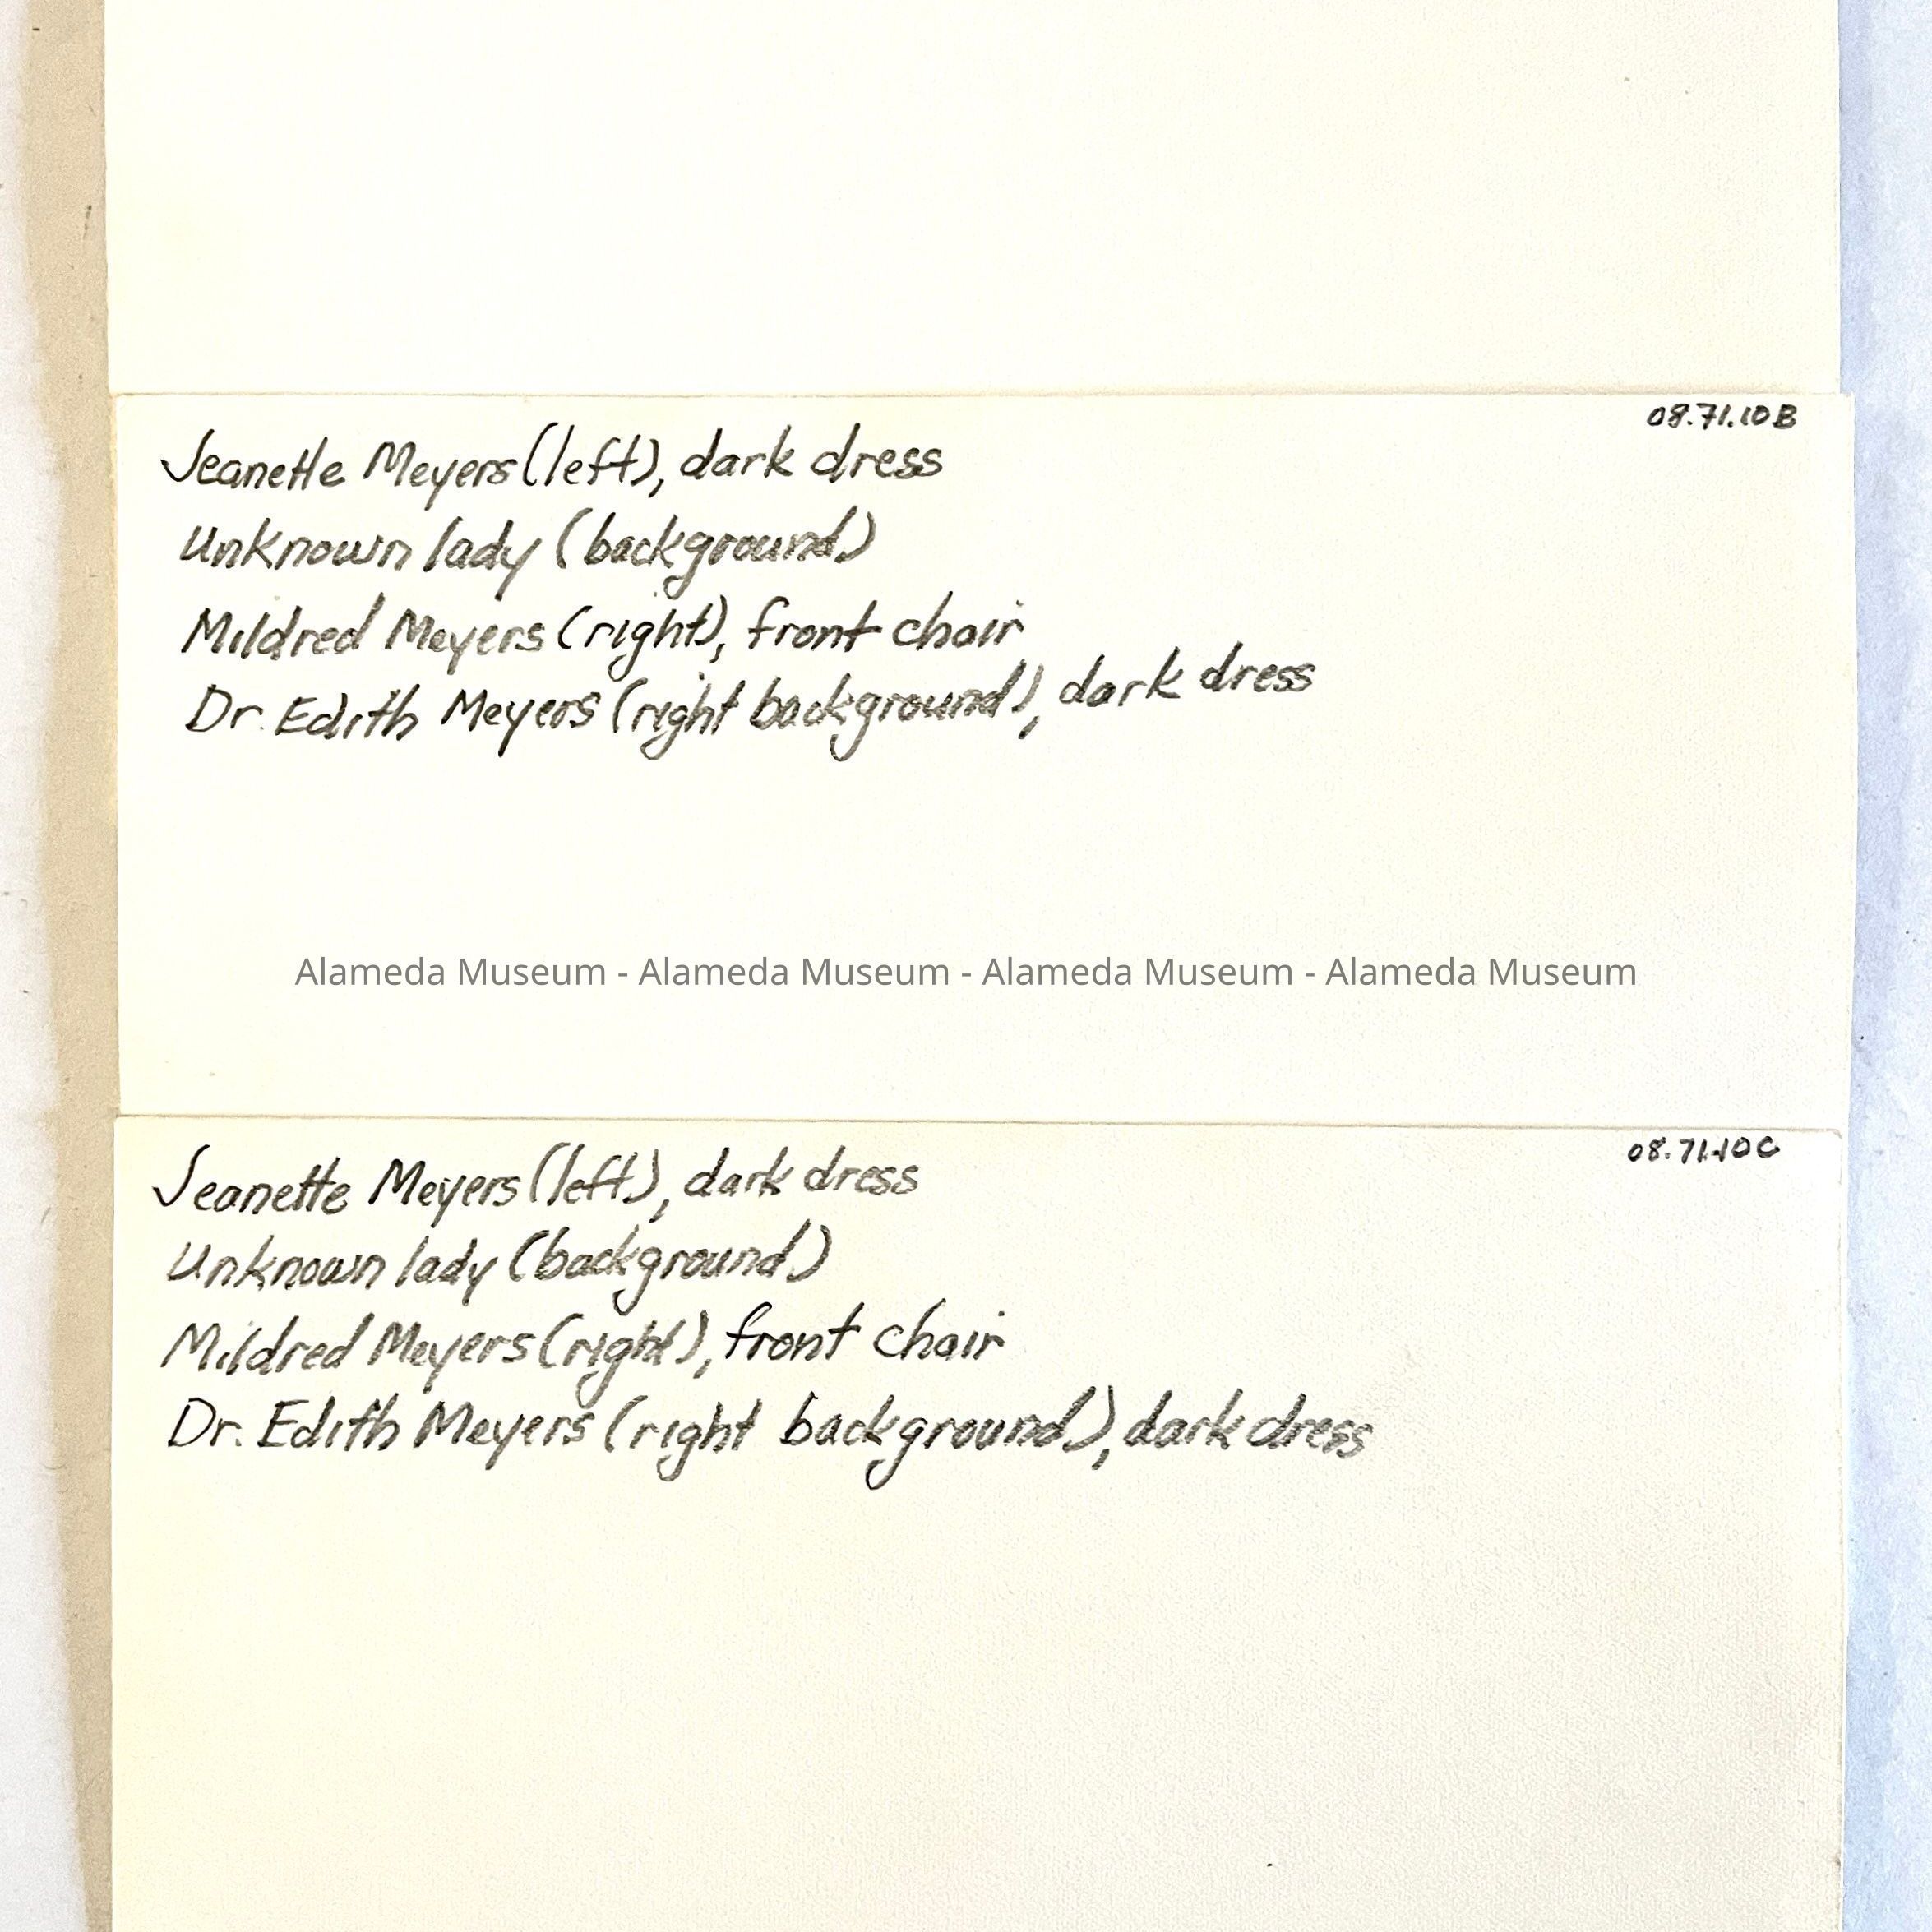 08.71.10B
Jeanette Meyers (left), dark dress
Unknown lady (background)
Mildred Meyers (right), front chair
Dr. Edith Meyers (right background), dark dress
Alameda Museum - Alameda Museum - Alameda Museum - Alameda Museum
08.71.10C
Jeanette Meyers (left), dark dress
Unknown lady (background)
Mildred Meyers (right), front chair
Dr. Edith Meyers (right background), dark dress